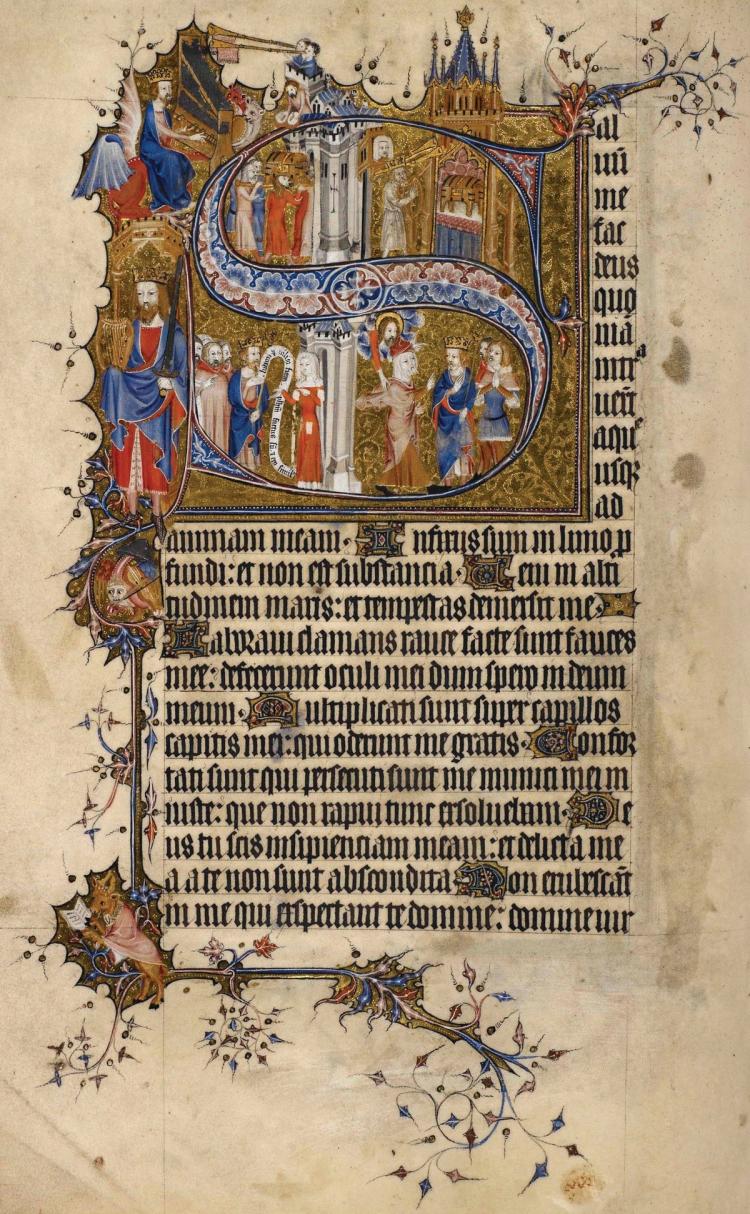 Sal
uū
me
fac
deus
quo
nia
intrᵃ
uerūt
aque
usqꝫ
ad
animam meam· Infixus sum in limo p
fundi: et non est substancia· Ueni in alti
tudinem maris: et tempestas demersit me·
Laboraui clamans rauce facte sunt fauces
mee: defecerunt oculi mei dum spero in deum
meum· Multiplicati sunt super capillos
capitis mei: qui oderunt me gratis· Confor
tati sunt qui persecuti sunt me inimici mei in
iuste: que non rapui tunc exsoluebam· De
us tu scis insipienciam meam: et delicta me
a a te non sunt abscondita· Non erubescāt
in me qui exspectant te domine: domine uir